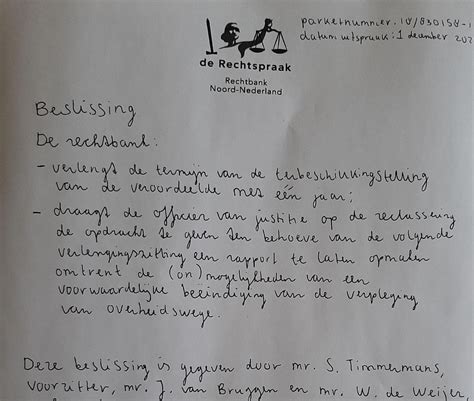 parketnummer: 18/830158-1
datum uitspraak: 1 december 202
de Rechtspraak
Rechtbank
Noord-Nederland
Beslissing
De rechtbank:
- verlengt de termijn van de terbeschikkingstelling
van de veroordeelde met één jaar;
- draagt de officier van justitie op de reclassering
de opdracht te geven ten behoeve van de volgende
verlengingszitting een rapport te laten opmaken
omtrent de (on)mogelijkheden van een
voorwaardelijke beëindiging van de verpleging
van overheidswege.
Deze beslissing is gegeven door mr. S. Timmermans,
voorzitter, mr. J. van Bruggen en mr. W. de Weijer,